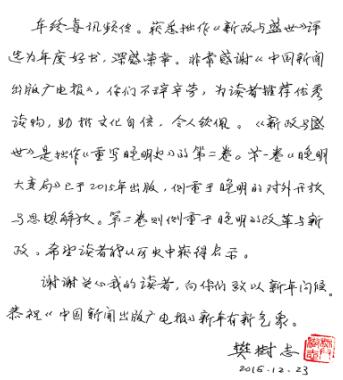 年终喜讯频传。获悉拙作《新政与盛世》评
选为年度好书，深感荣幸。非常感谢《中国新闻
出版广电报》，你们不辞辛劳，为读者推荐优秀
读物，助推文化自信，令人钦佩。《新政与盛
世》是拙作《重写晚明史》的第二卷。第一卷《晚明
大变局》已于2015年出版，侧重于晚明的对外开放
与思想解放。第二卷则侧重于晚明的改革与新
政。希望读者得以从历史中获得启示。
谢谢关心我的读者，向你们致以新年问候。
恭祝《中国新闻出版广电报》新年有新气象。
樊树志
2018.12.23